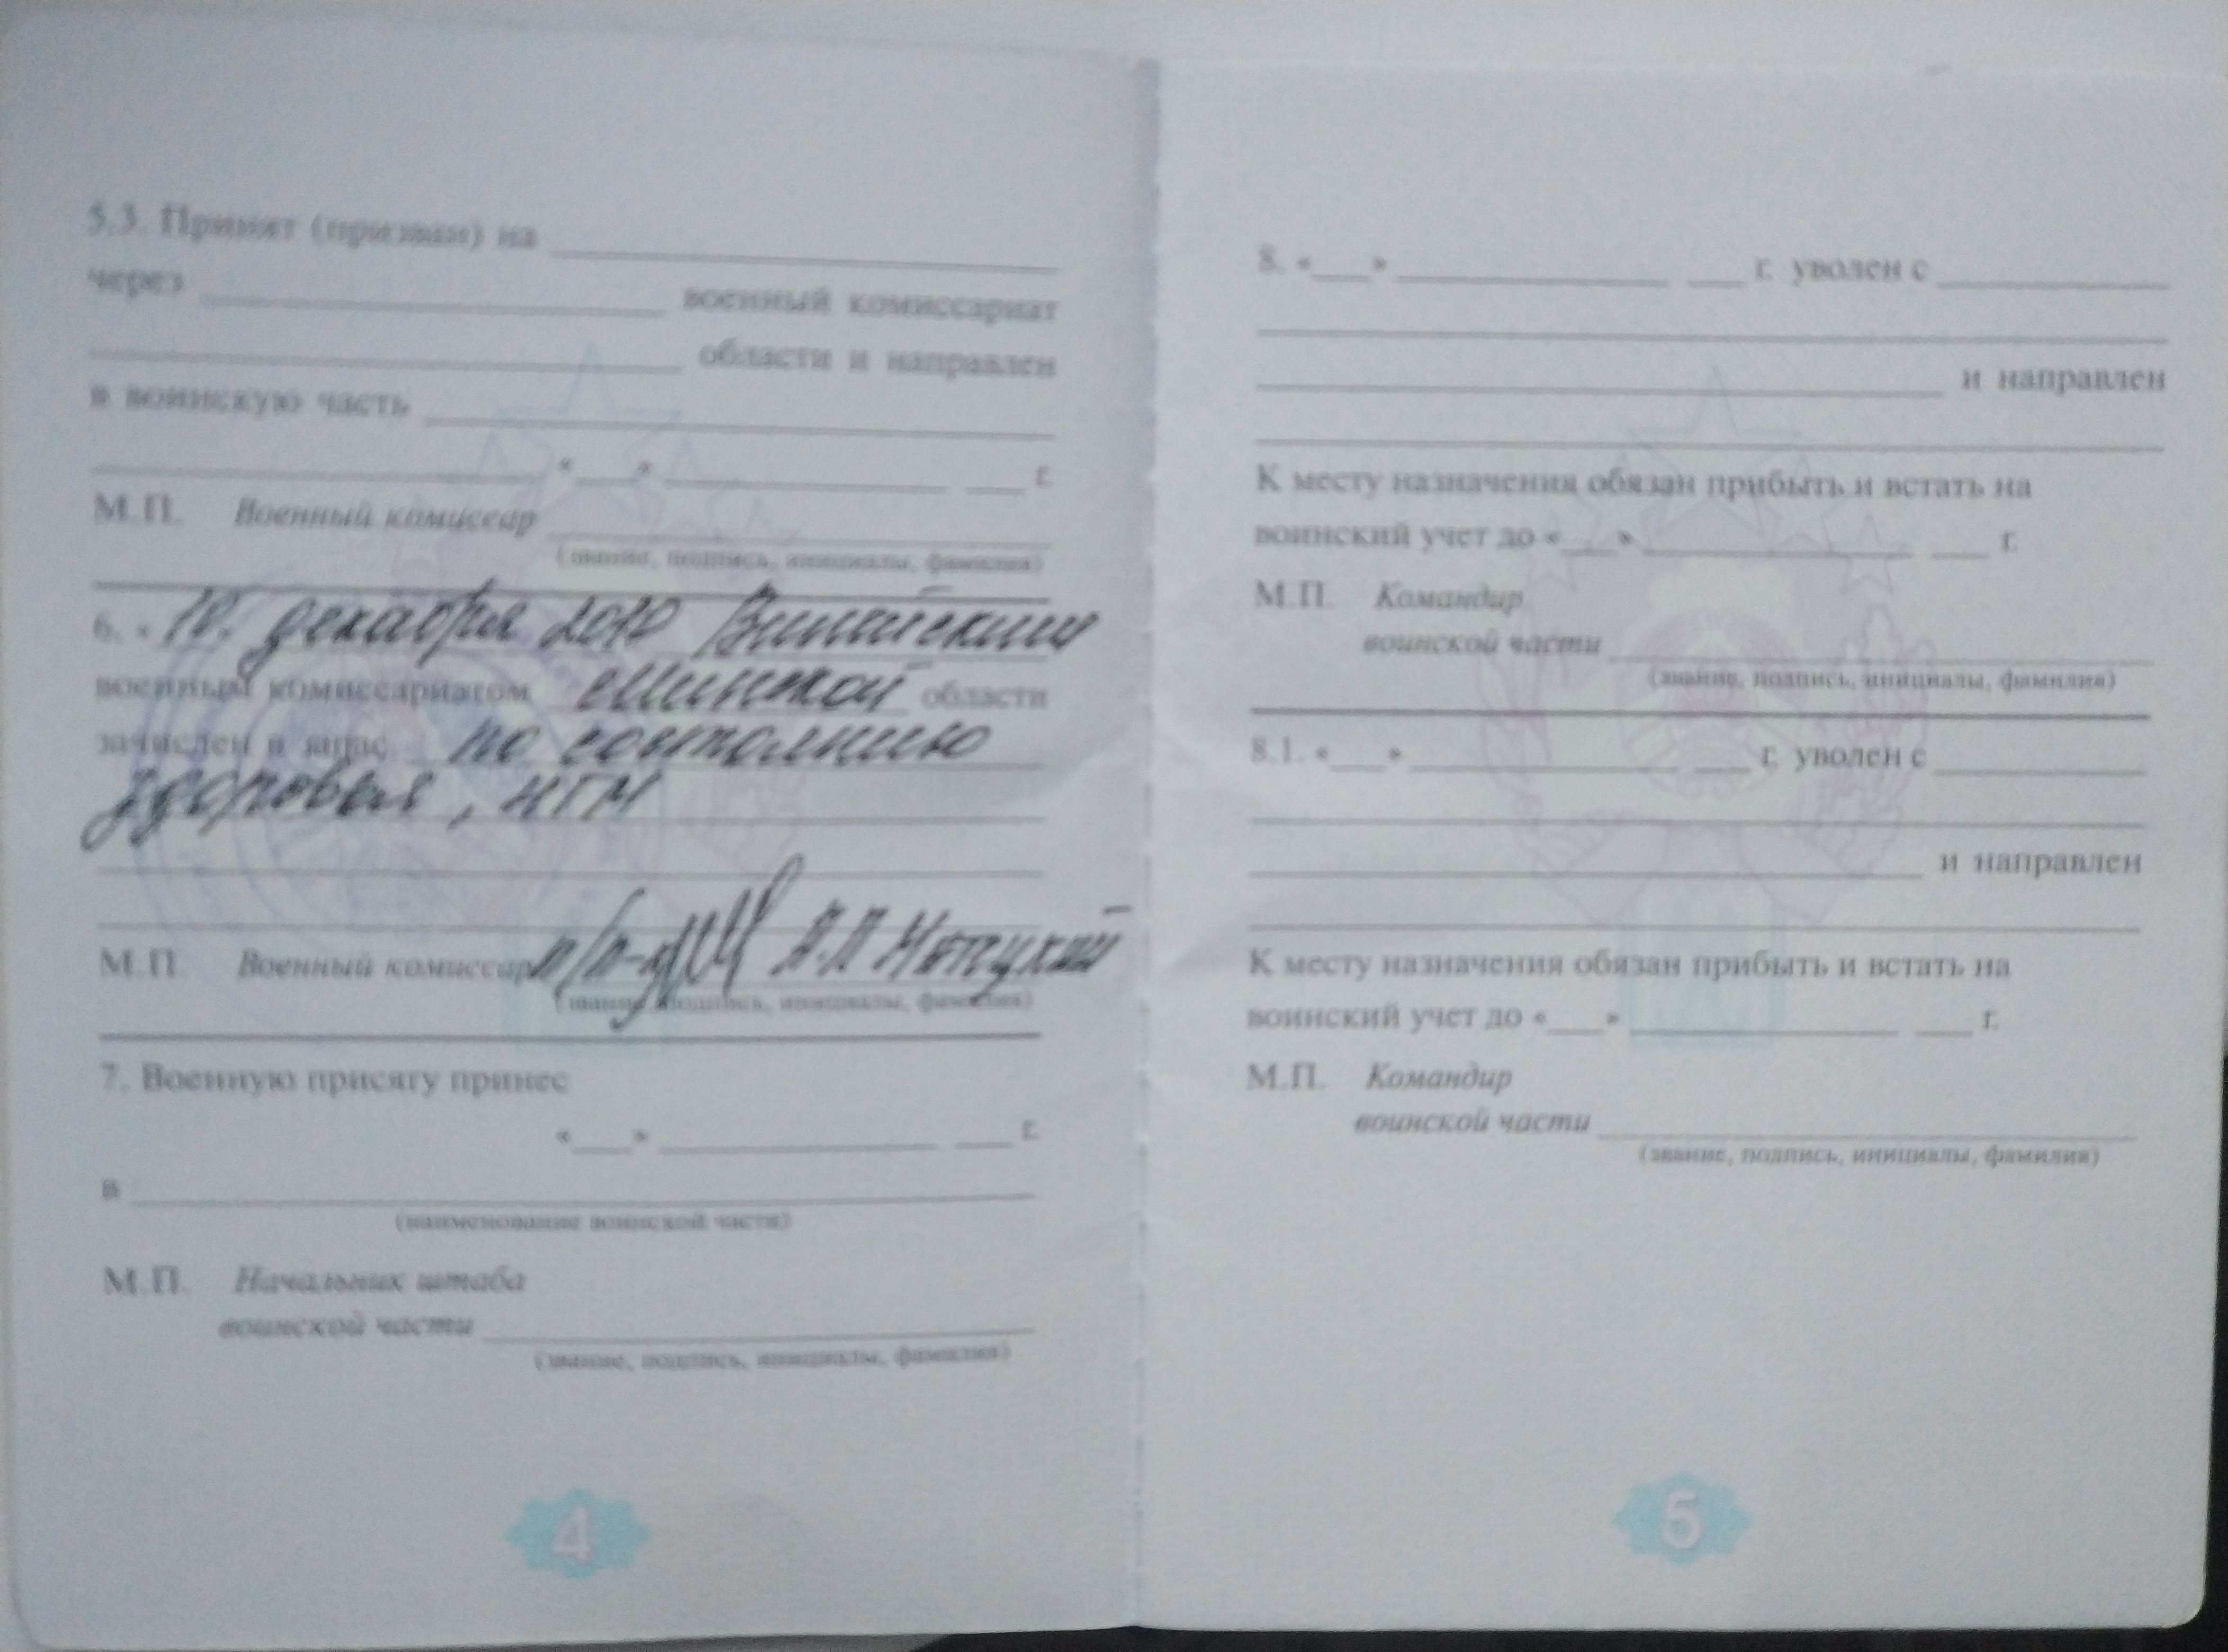 5.3. Принят (призван) на
через военный комиссариат
области и направлен
в воинскую часть
« » г.
М.П. Военный комиссар
(звание, подпись, инициалы, фамилия)
6. « 10. декабря 2010
военным комиссариатом Минской области
зачислен в запас по состоянию
здоровья, НГМ
М.П. Военный комиссар п/п-к
(звание, подпись, инициалы, фамилия)
7. Военную присягу принес
« » г.
в
(наименование воинской части)
М.П. Начальник штаба
воинской части
(звание, подпись, инициалы, фамилия)
4
8. « » г. уволен с
и направлен
К месту назначения обязан прибыть и встать на
воинский учет до « » г.
М.П. Командир
воинской части
(звание, подпись, инициалы, фамилия)
8.1. « » г. уволен с
и направлен
К месту назначения обязан прибыть и встать на
воинский учет до « » г.
М.П. Командир
воинской части
(звание, подпись, инициалы, фамилия)
5